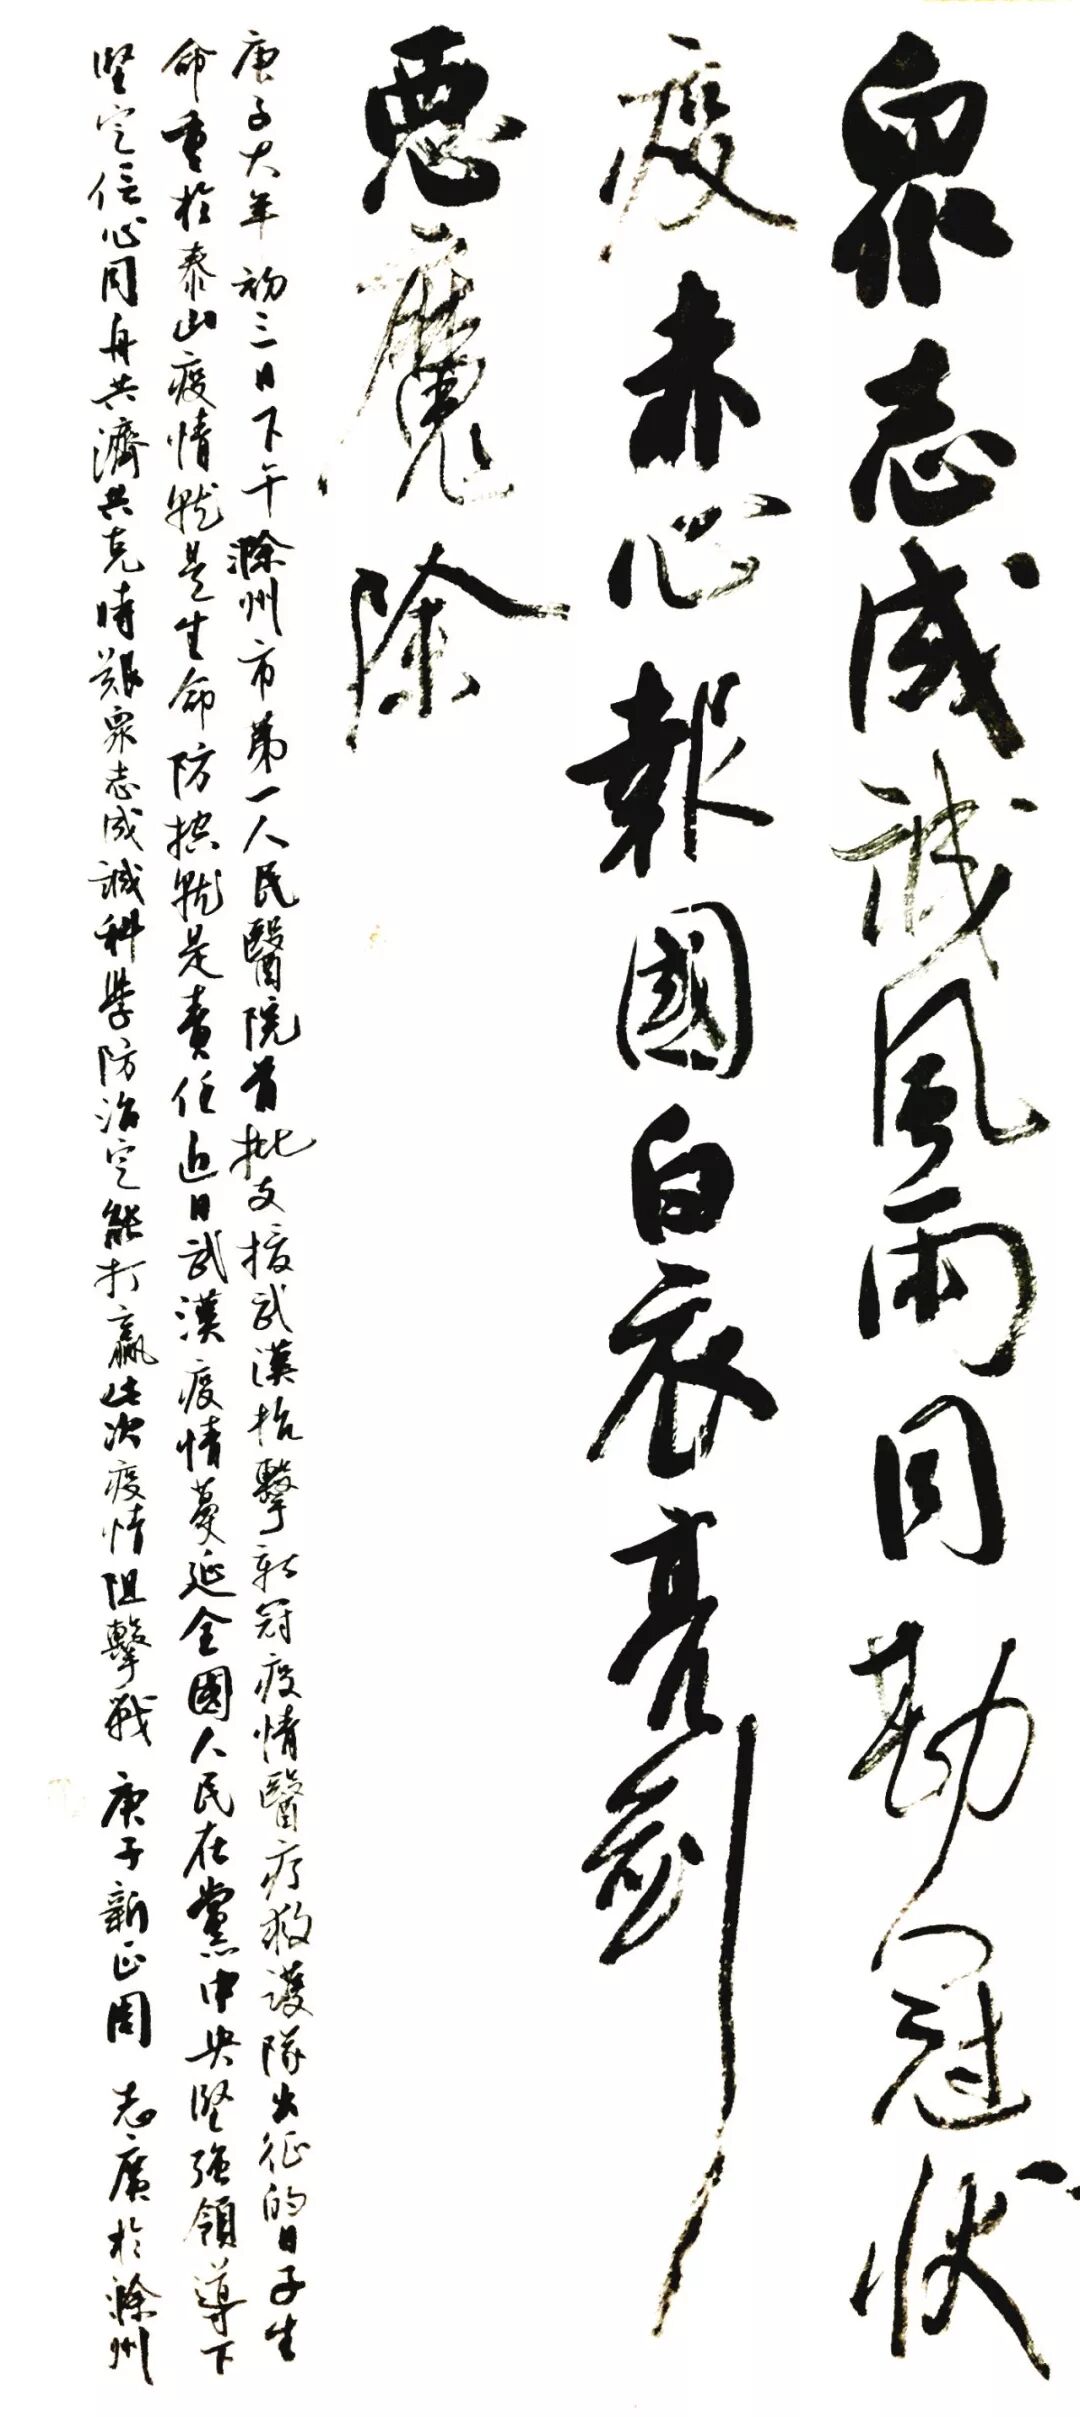 眾志成誠風雨同勘冠狀
疫赤心報國白衣亮劍
惡魔除
庚子大年初三日下午滁州市第一人民醫院首批支援武漢抗擊新冠疫情醫疗救護隊出征的日子生
命重於泰山疫情就是生命防控就是責任近日武漢疫情蔓延全國人民在黨中央堅強領導下
堅定信心同舟共濟共克時艱眾志成誠科學防治定能打贏此次疫情阻擊戰 庚子新正周 志廣於滁州